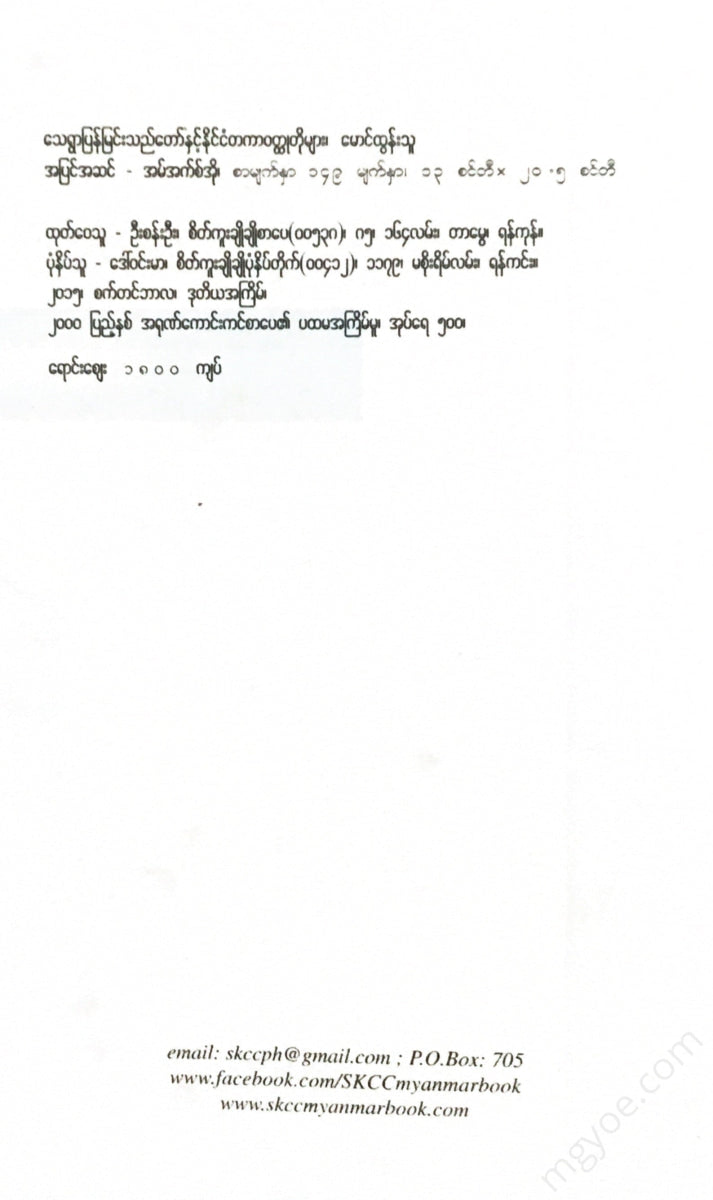 သေရွာပြန်မြင်းသည်တော်နှင့်နိုင်ငံတကာဝတ္ထုတိုများ၊ မောင်ထွန်းသူ
အပြင်အဆင် - အမ်အက်စ်အို၊ စာမျက်နှာ ၁၄၉ မျက်နှာ၊ ၁၃ စင်တီ× ၂၀.၅ စင်တီ
ထုတ်ဝေသူ - ဦးစန်းဦး၊ စိတ်ကူးချိုချိုစာပေ(၀၀၅၃၈)၊ ဂ၅၊ ၁၆၄လမ်း၊ တာမွေ၊ ရန်ကုန်။
ပုံနှိပ်သူ - ဒေါ်ဝင်းမာ၊ စိတ်ကူးချိုချိုပုံနှိပ်တိုက်(၀၀၄၁၂)၊ ၁၁၇၉၊ မစိုးရိမ်လမ်း၊ ရန်ကင်း။
၂၀၁၅၊ စက်တင်ဘာလ၊ ဒုတိယအကြိမ်၊
၂၀၀၀ ပြည့်နှစ် အရုဏ်ကောင်းကင်စာပေ၏ ပထမအကြိမ်မူ၊ အုပ်ရေ ၅၀၀၊
ရောင်းဈေး ၁၈၀၀ ကျပ်
email: skccph@gmail.com ; P.O.Box: 705
www.facebook.com/SKCCmyanmarbook
www.skccmyanmarbook.com
mgyoe.com